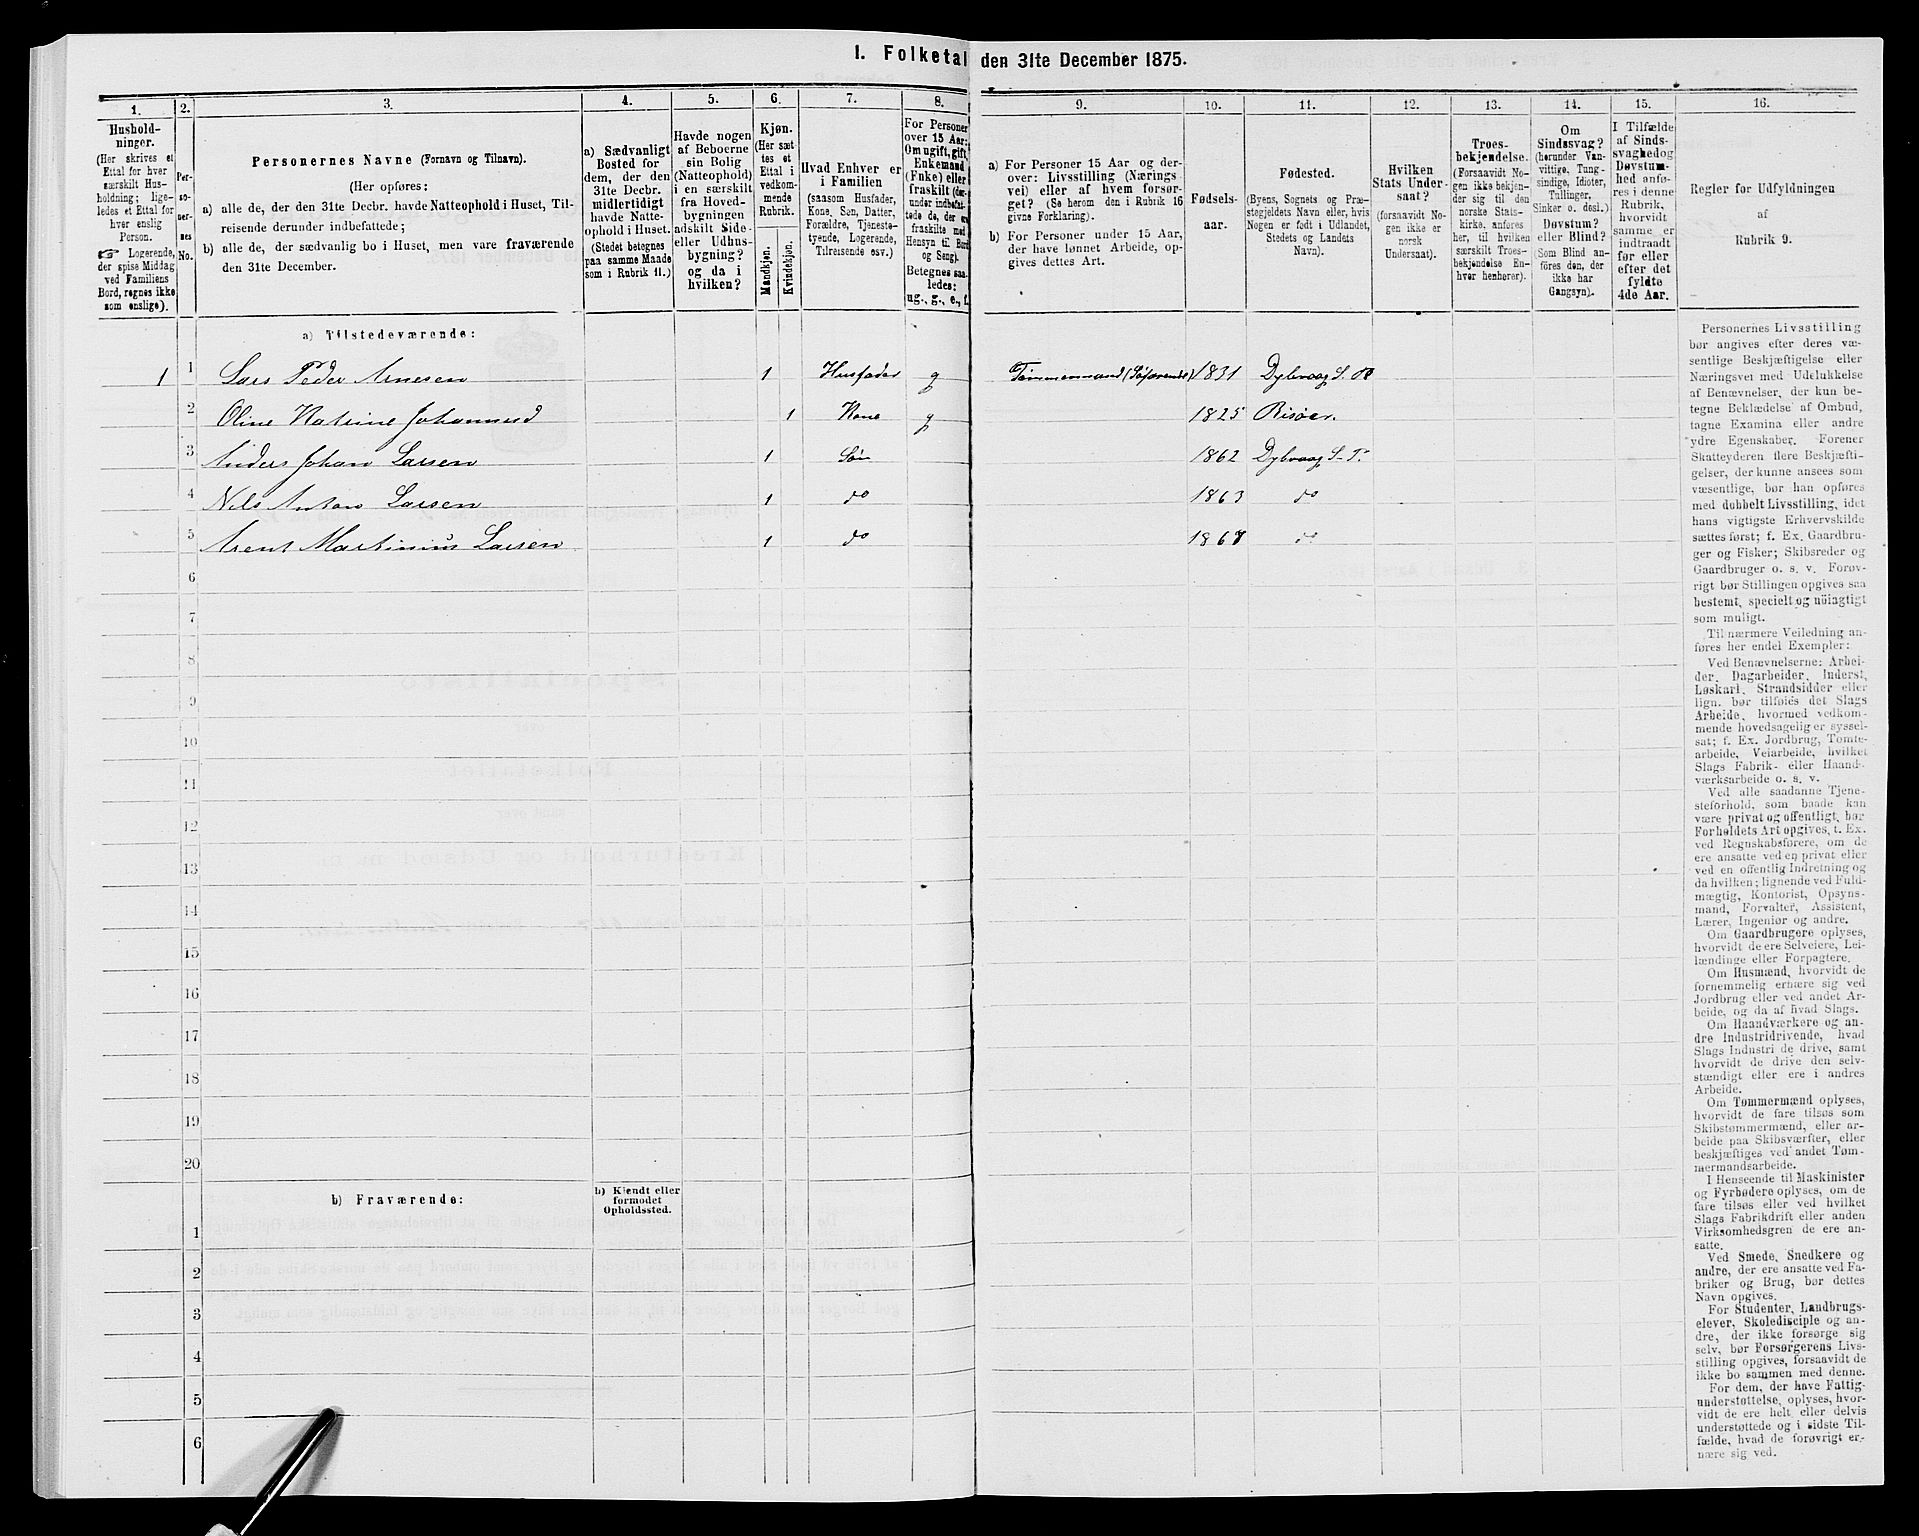 I. Folketal den 31te December 1875.
1.
Hushold-
ninger.
(Her skrives et
Ettal for hver
særskilt Hus-
holdning; lige-
ledes et Ettal for
hver enslig
Person.
☞ Logerende,
der spise Middag
ved Familiens
Bord, regnes ikke
som enslige).
2.
Per-
so-
ner-
nes
No.
3.
Personernes Navne (Fornavn og Tilnavn).
(Her opføres:
a) alle de, der den 31te Decbr. havde Natteophold i Huset, Til-
reisende derunder indbefattede;
b) alle de, der sædvanlig bo i Huset, men vare fraværende
den 31te December.
4.
a) Sædvanligt
Bosted for
dem, der den
31te Decbr.
midlertidigt
havde Natte-
ophold i Huset.
(Stedet betegnes
paa samme Maade
som i Rubrik 11.)
5.
Havde nogen
af Beboerne
sin Bolig
(Natteophold)
i en særskilt
fra Hoved-
bygningen
adskilt Side-
eller Udhus-
bygning?
og da i
hvilken?
6.
Kjøn.
(Her sæt-
tes et
Ettal i
vedkom-
mende
Rubrik.
Mandkjøn.
Kvindekjøn.
7.
Hvad Enhver er
i Familien
(saasom Husfader,
Kone, Søn, Datter,
Forældre, Tjeneste-
tyende, Logerende,
Tilreisende osv.)
8.
For Personer
over 15 Aar:
Om ugift, gift,
Enkemand
(Enke) eller
fraskilt (der-
under indbefat-
tede de, der ere
fraskilte med
Hensyn til Bord
og Seng).
Betegnes saa-
ledes:
ug., g., e., f.
9.
a) For Personer 15 Aar og der-
over: Livsstilling (Nærings-
vei) eller af hvem forsør-
get? (Se herom den i Rubrik 16
givne Forklaring).
b) For Personer under 15 Aar,
der have lønnet Arbeide, op-
gives dettes Art.
10.
Fødsels-
aar.
11.
Fødested.
(Byens, Sognets og Præ-
stegjeldets Navn eller, hvis
Nogen er født i Udlandet,
Stedets og Landets
Navn).
12.
Hvilken
Stats Under-
saat?
(forsaavidt No-
gen ikke er
norsk
Undersaat).
13.
Troes-
bekjendelse.
(Forsaavidt No-
gen ikke bekjen-
der sig til den
norske Stats-
kirke, anføres
her, til hvilken
særskilt Troes-
bekjendelse En-
hver henhører).
14.
Om
Sindssvag?
(herunder Van-
vittige, Tung-
sindige, Idioter,
Tullinger,
Sinker o. desl.)
Døvstum?
eller Blind?
(Som Blind an-
føres den, der
ikke har
Gangsyn).
15.
I Tilfælde
af Sinds-
svaghed og
Døvstum-
hed anfø-
res i denne
Rubrik,
hvorvidt
samme er
indtraadt
før eller
efter det
fyldte
4de Aar.
16.
Regler for Udfyldningen
af
Rubrik 9.
a) Tilstedeværende:
1 1 Lars Peder Arnesen 1 Husfader g Tømmermand (Søfarende) 1831 Dybvaag S. P.
2 Oline Katrine Johannesd 1 Kone g 1825 Risøer.
3 Anders Johan Larsen 1 Søn 1862 Dybvaag S. P.
4 Nils Anton Larsen 1 do 1863 do
5 Arent Martinius Larsen 1 do 1867 do
6
7
8
9
10
11
12
13
14
15
16
17
18
19
20
b) Fraværende:
b) Kjendt eller
formodet
Opholdssted.
1
2
3
4
5
6
Personernes Livsstilling
bør angives efter deres væ-
sentlige Beskjæftigelse eller
Næringsvei med Udelukkelse
af Benævnelser, der kun be-
tegne Beklædelse af Ombud,
tagne Examina eller andre
ydre Egenskaber. Forener
Skatteyderen flere Beskjæfti-
gelser, der kunne ansees som
væsentlige, bør han opføres
med dobbelt Livsstilling, idet
hans vigtigste Erhvervskilde
sættes først; f. Ex. Gaardbru-
ger og Fisker; Skibsreder og
Gaardbruger o. s. v. Forøv-
rigt bør Stillingen opgives saa
bestemt, specielt og nöiagtigt
som muligt.
Til nærmere Veiledning an-
føres her endel Exempler:
Ved Benævnelserne: Arbei-
der, Dagarbeider, Inderst,
Løskarl, Strandsidder eller
lign. bør tilføies det Slags
Arbeide, hvormed vedkom-
mende hovedsagelig er syssel-
sat; f. Ex. Jordbrug, Tomte-
arbeide, Veiarbeide, hvilket
Slags Fabrik- eller Haand-
værksarbeide o. s. v.
Ved alle saadanne Tjene-
steforhold, som baade kan
være privat og offentligt, bør
Forholdets Art opgives, t. Ex.
ved Regnskabsførere, om de
ere ansatte ved en privat eller
ved en offentlig Indretning og
da hvilken; lignende ved Fuld-
mægtig, Kontorist, Opsyns-
mand, Forvalter, Assistent,
Lærer, Ingeniør og andre.
Om Gaardbrugere oplyses,
hvorvidt de ere Selveiere, Lei-
lændinge eller Forpagtere.
Om Husmænd, hvorvidt de
fornemmelig ernære sig ved
Jordbrug eller ved andet Ar-
beide, og da af hvad Slags.
Om Haandværkere og an-
dre Industridrivende, hvad
Slags Industri de drive, samt
hvorvidt de drive den selv-
stændigt eller ere i andres
Arbeide.
Om Tømmermænd oplyses,
hvorvidt de fare tilsøs som
Skibstømmermænd, eller ar-
beide paa Skibsværfter, eller
beskjæftiges ved andet Tøm-
mermandsarbeide.
I Henseende til Maskinister
og Fyrbødere oplyses, om de
fare tilsøs eller ved hvilket
Slags Fabrikdrift eller anden
Virksomhedsgren de ere an-
satte.
Ved Smede, Snedkere og
andre, der ere ansatte ved Fa-
briker og Brug, bør dettes
Navn opgives.
For Studenter, Landbrugs-
elever, Skoledisciple og an-
dre, der ikke forsørge sig
selv, bør Forsørgerens Livs-
stilling opgives, forsaavidt de
ikke bo sammen med denne.
For dem, der have Fattig-
understøttelse, oplyses, hvor-
vidt de ere helt eller delvis
understøttede og i sidste Til-
fælde, hvad de forøvrigt er-
nære sig ved.